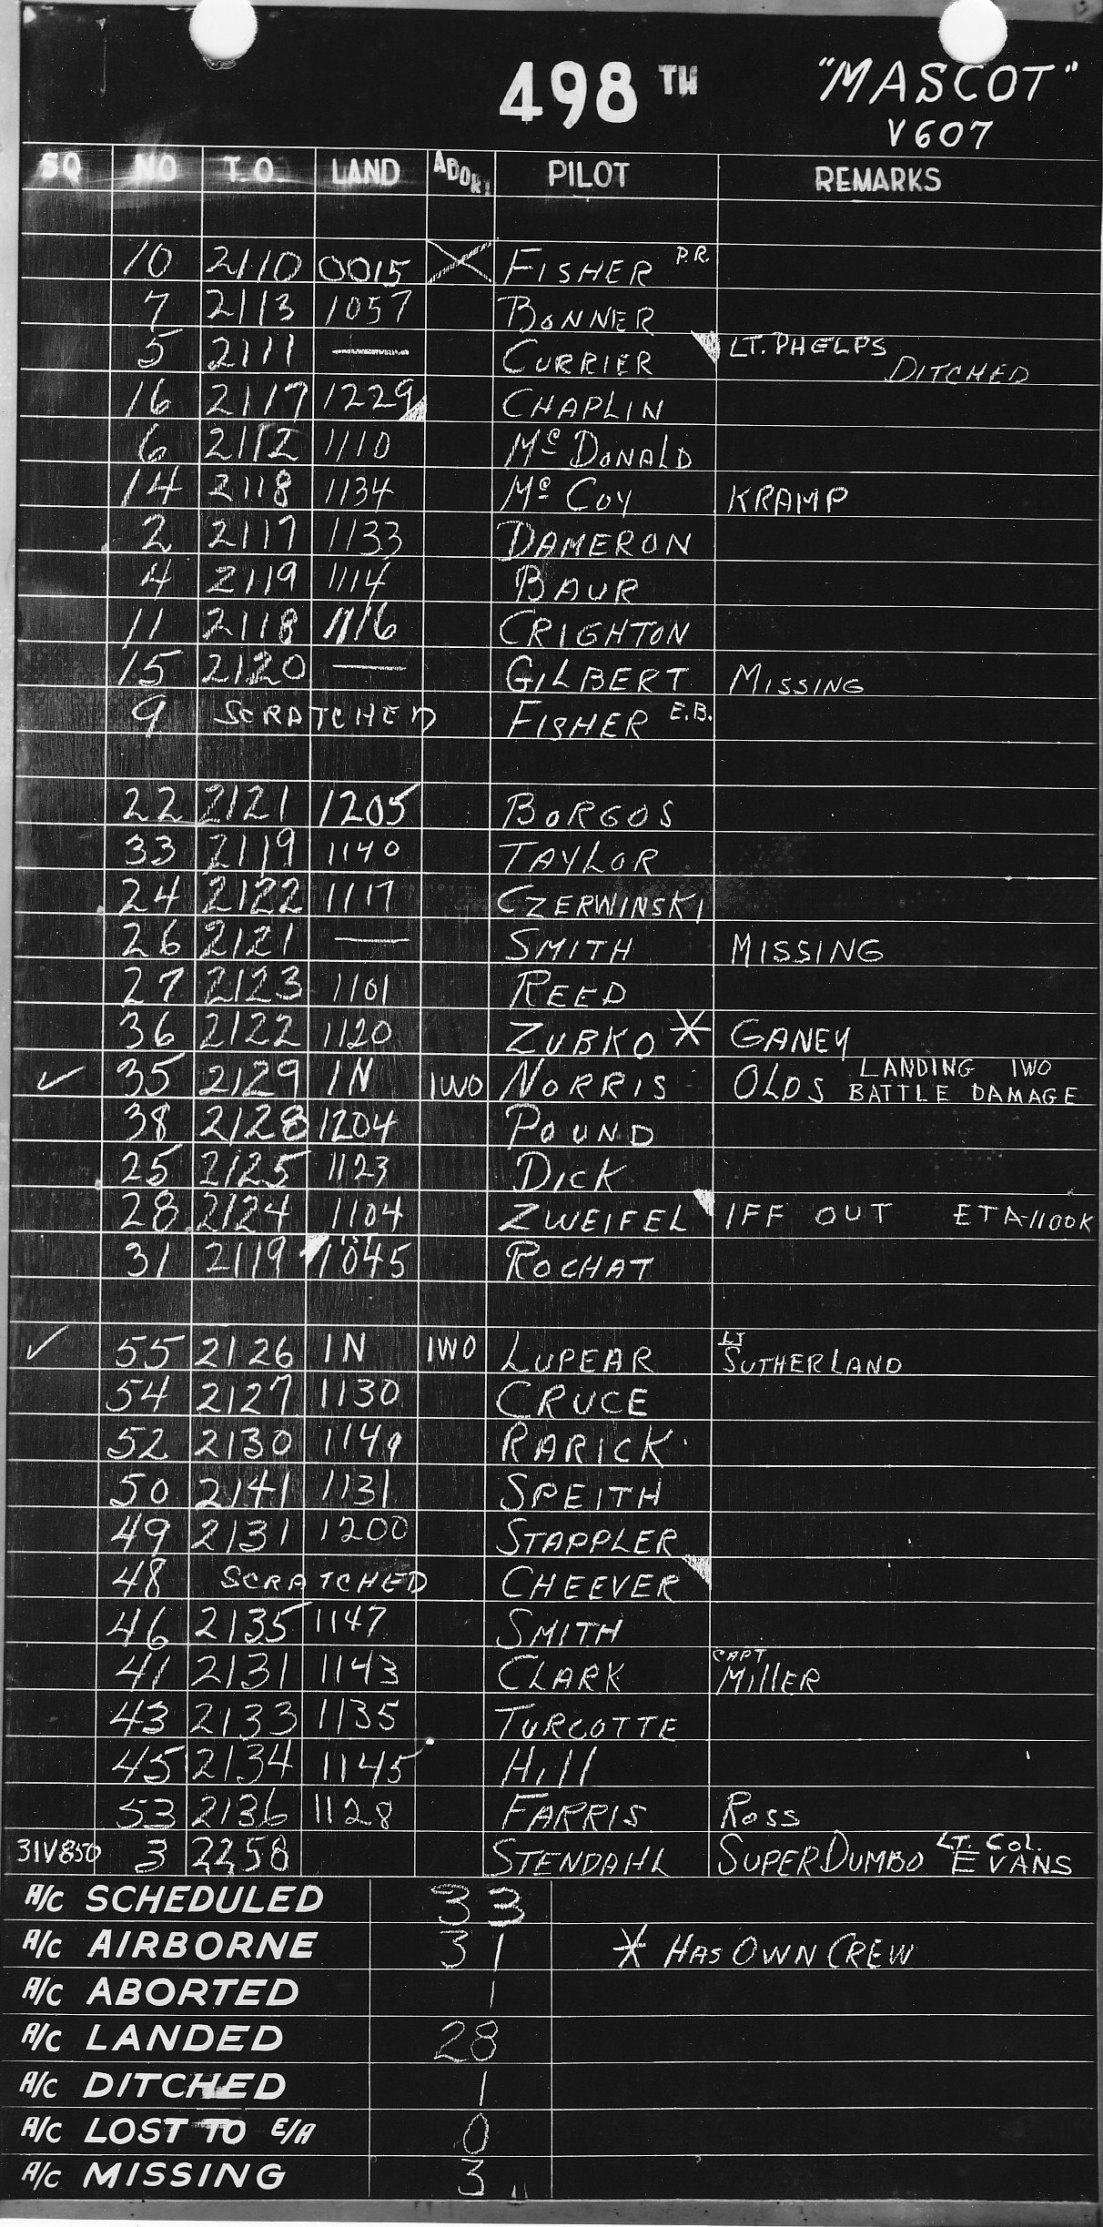 498TH "MASCOT"
V607
SQ NO T.O. LAND ABORT PILOT REMARKS
10 2110 0015 X FISHER P.R.
7 2113 1057 BONNER
5 2111 — CURRIER LT. PHELPS DITCHED
16 2117 1229 CHAPLIN
6 2112 1110 Mc DONALD
14 2118 1134 Mc COY KRAMP
2 2117 1133 DAMERON
4 2119 1114 BAUR
11 2118 1116 CRIGHTON
15 2120 — GILBERT MISSING
9 SCRATCHED FISHER E.B.
22 2121 1205 BORGOS
33 2119 1140 TAYLOR
24 2122 1117 CZERWINSKI
26 2121 — SMITH MISSING
27 2123 1101 REED
36 2122 1120 ZUBKO * GANEY
✓ 35 2129 IN IWO NORRIS OLDS LANDING IWO BATTLE DAMAGE
38 2128 1204 POUND
25 2125 1123 DICK
28 2124 1104 ZWEIFEL IFF OUT ETA-1100K
31 2119 1045 ROCHAT
✓ 55 2126 IN IWO LUPEAR LT SUTHERLAND
54 2127 1130 CRUCE
52 2130 1149 RARICK
50 2141 1131 SPEITH
49 2131 1200 STAPPLER
48 SCRATCHED CHEEVER
46 2135 1147 SMITH
41 2131 1143 CLARK CAPT MILLER
43 2133 1135 TURCOTTE
45 2134 1145 HILL
53 2136 1128 FARRIS ROSS
31V850 3 2258 STENDAHL SUPER DUMBO LT. COL. EVANS
A/C SCHEDULED 33
A/C AIRBORNE 31 * HAS OWN CREW
A/C ABORTED 1
A/C LANDED 28
A/C DITCHED 1
A/C LOST TO E/A 0
A/C MISSING 3